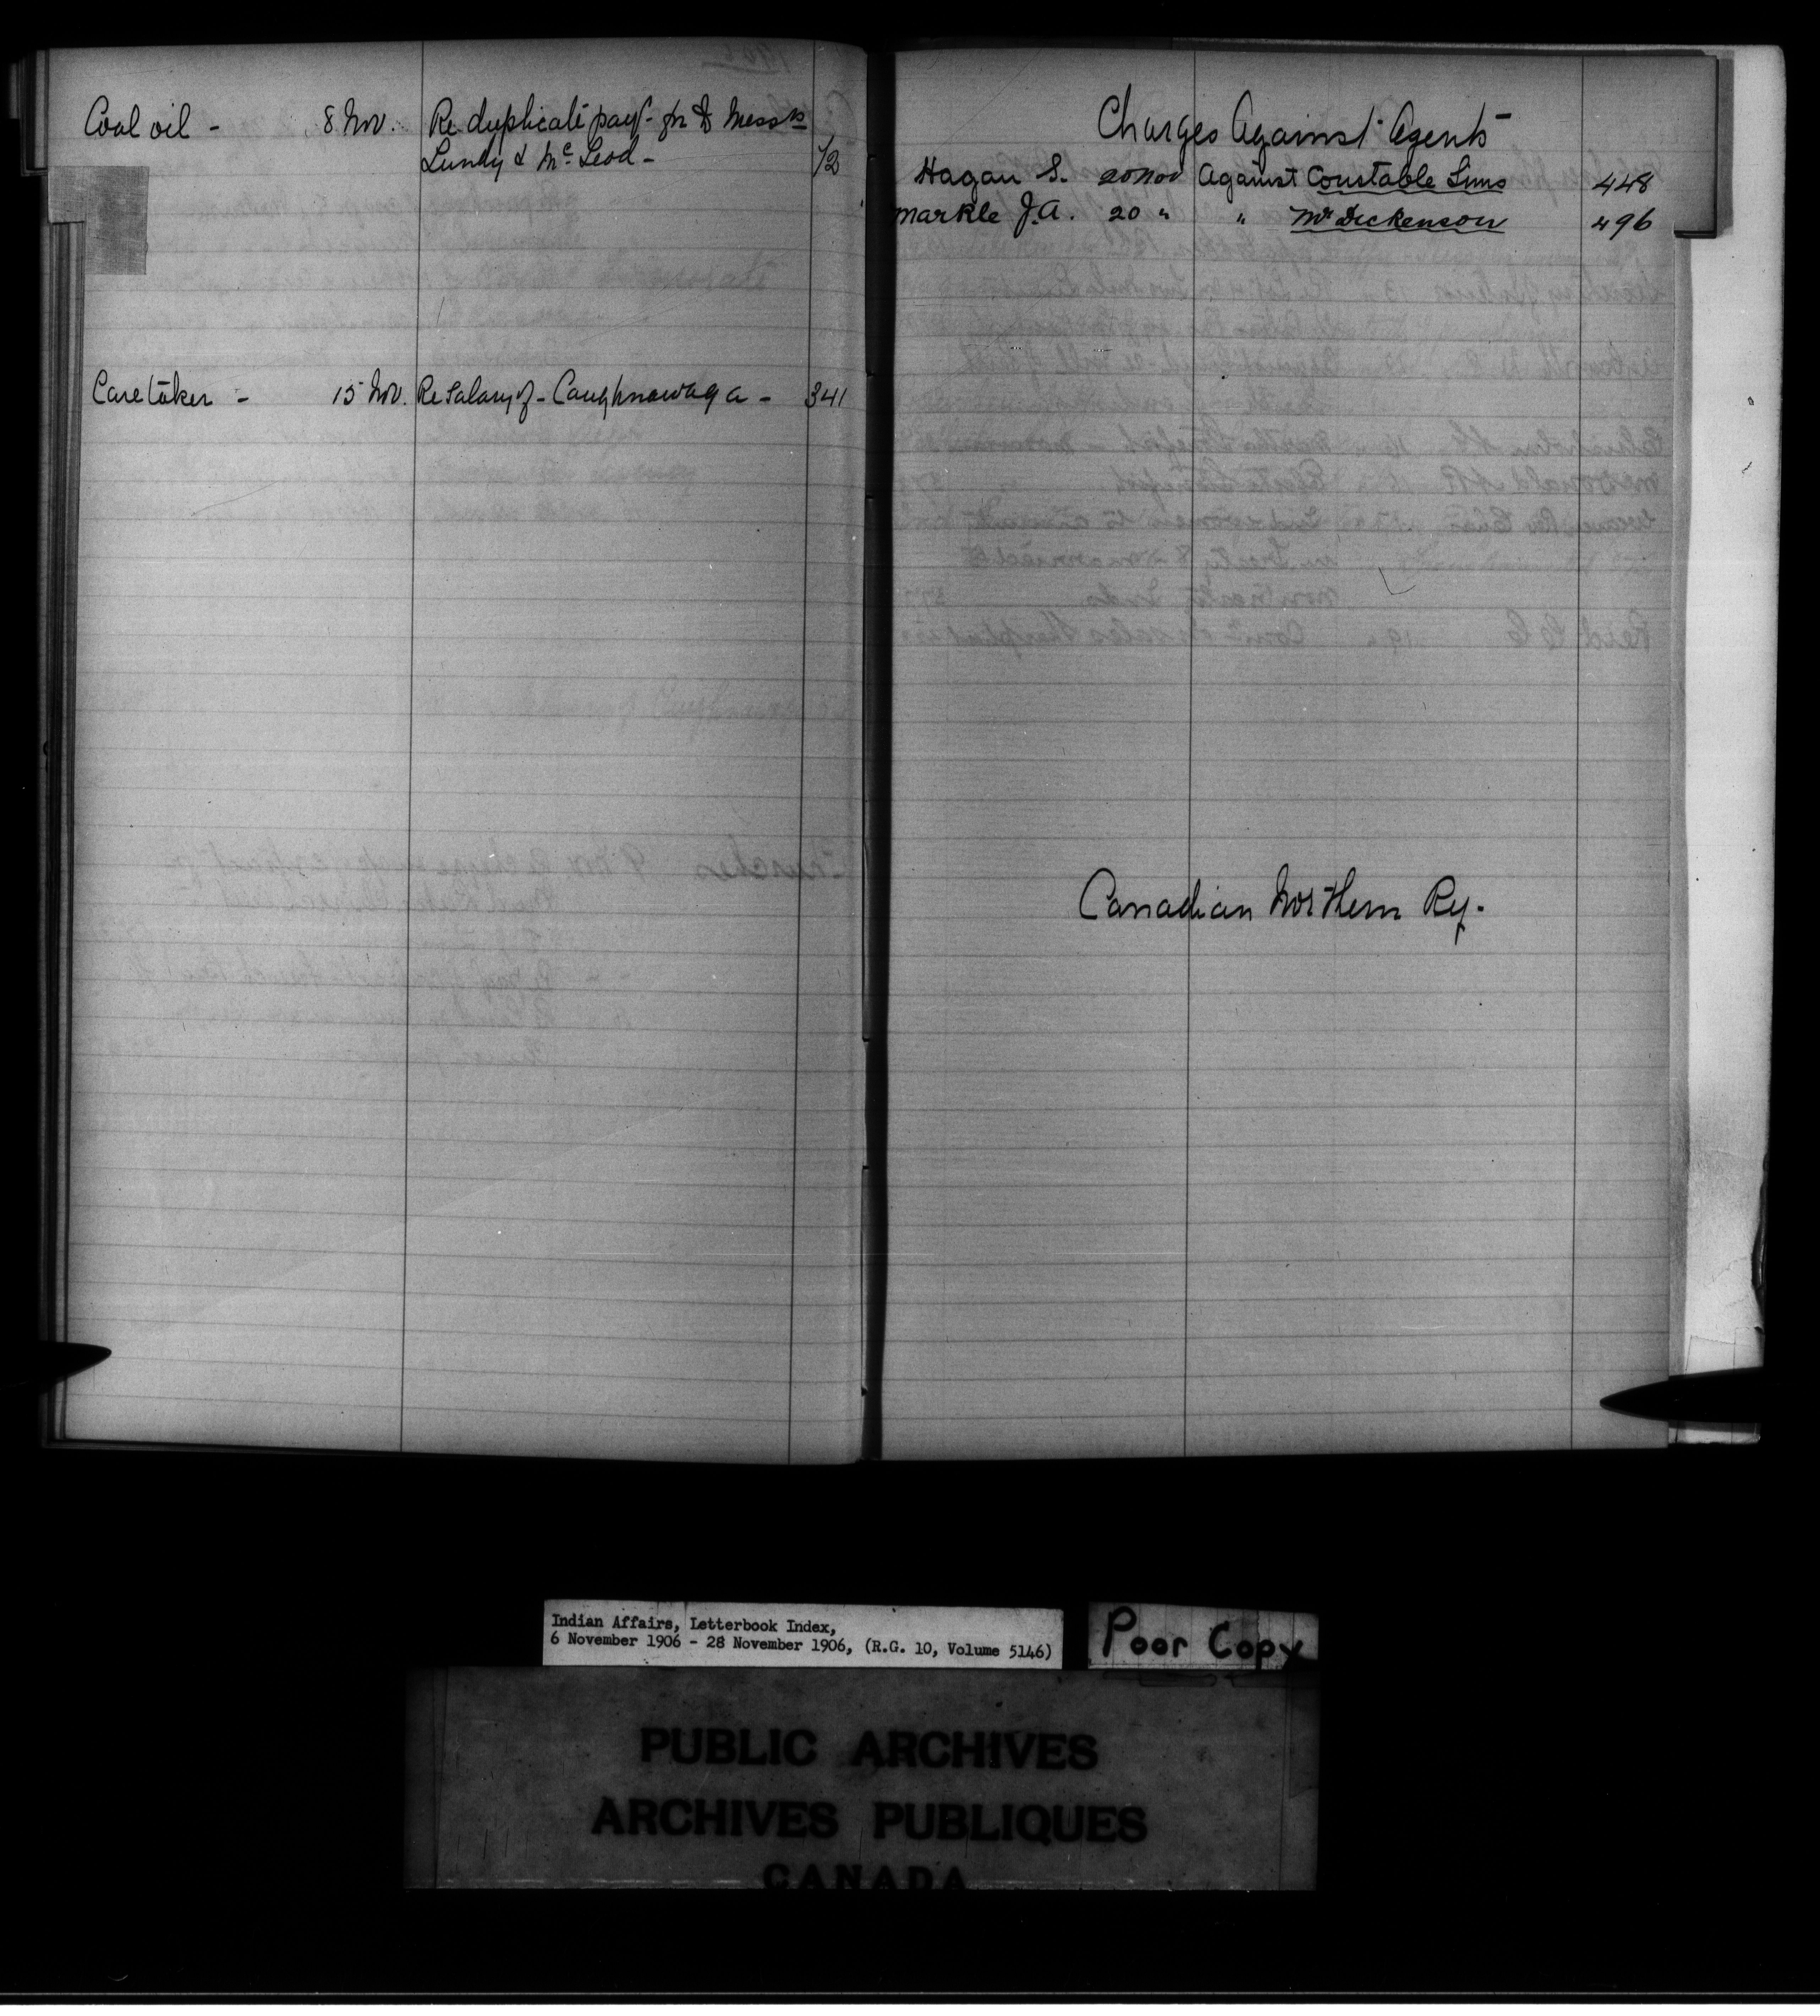 Coal oil - 8 Nov. Re duplicate payt. for to Messrs
Lundy & McLeod - 72
Caretaker - 15 Nov. Re Salary of - Caughnawaga - 341
Charges Against Agents
Hagan S. 20 Nov Against Constable Sims 448
Markle J.A. 20 " " Mr Dickenson 496
Canadian Northern Ry.
Indian Affairs, Letterbook Index,
6 November 1906 - 28 November 1906, (R.G. 10, Volume 5146)
Poor Copy
PUBLIC ARCHIVES
ARCHIVES PUBLIQUES
CANADA